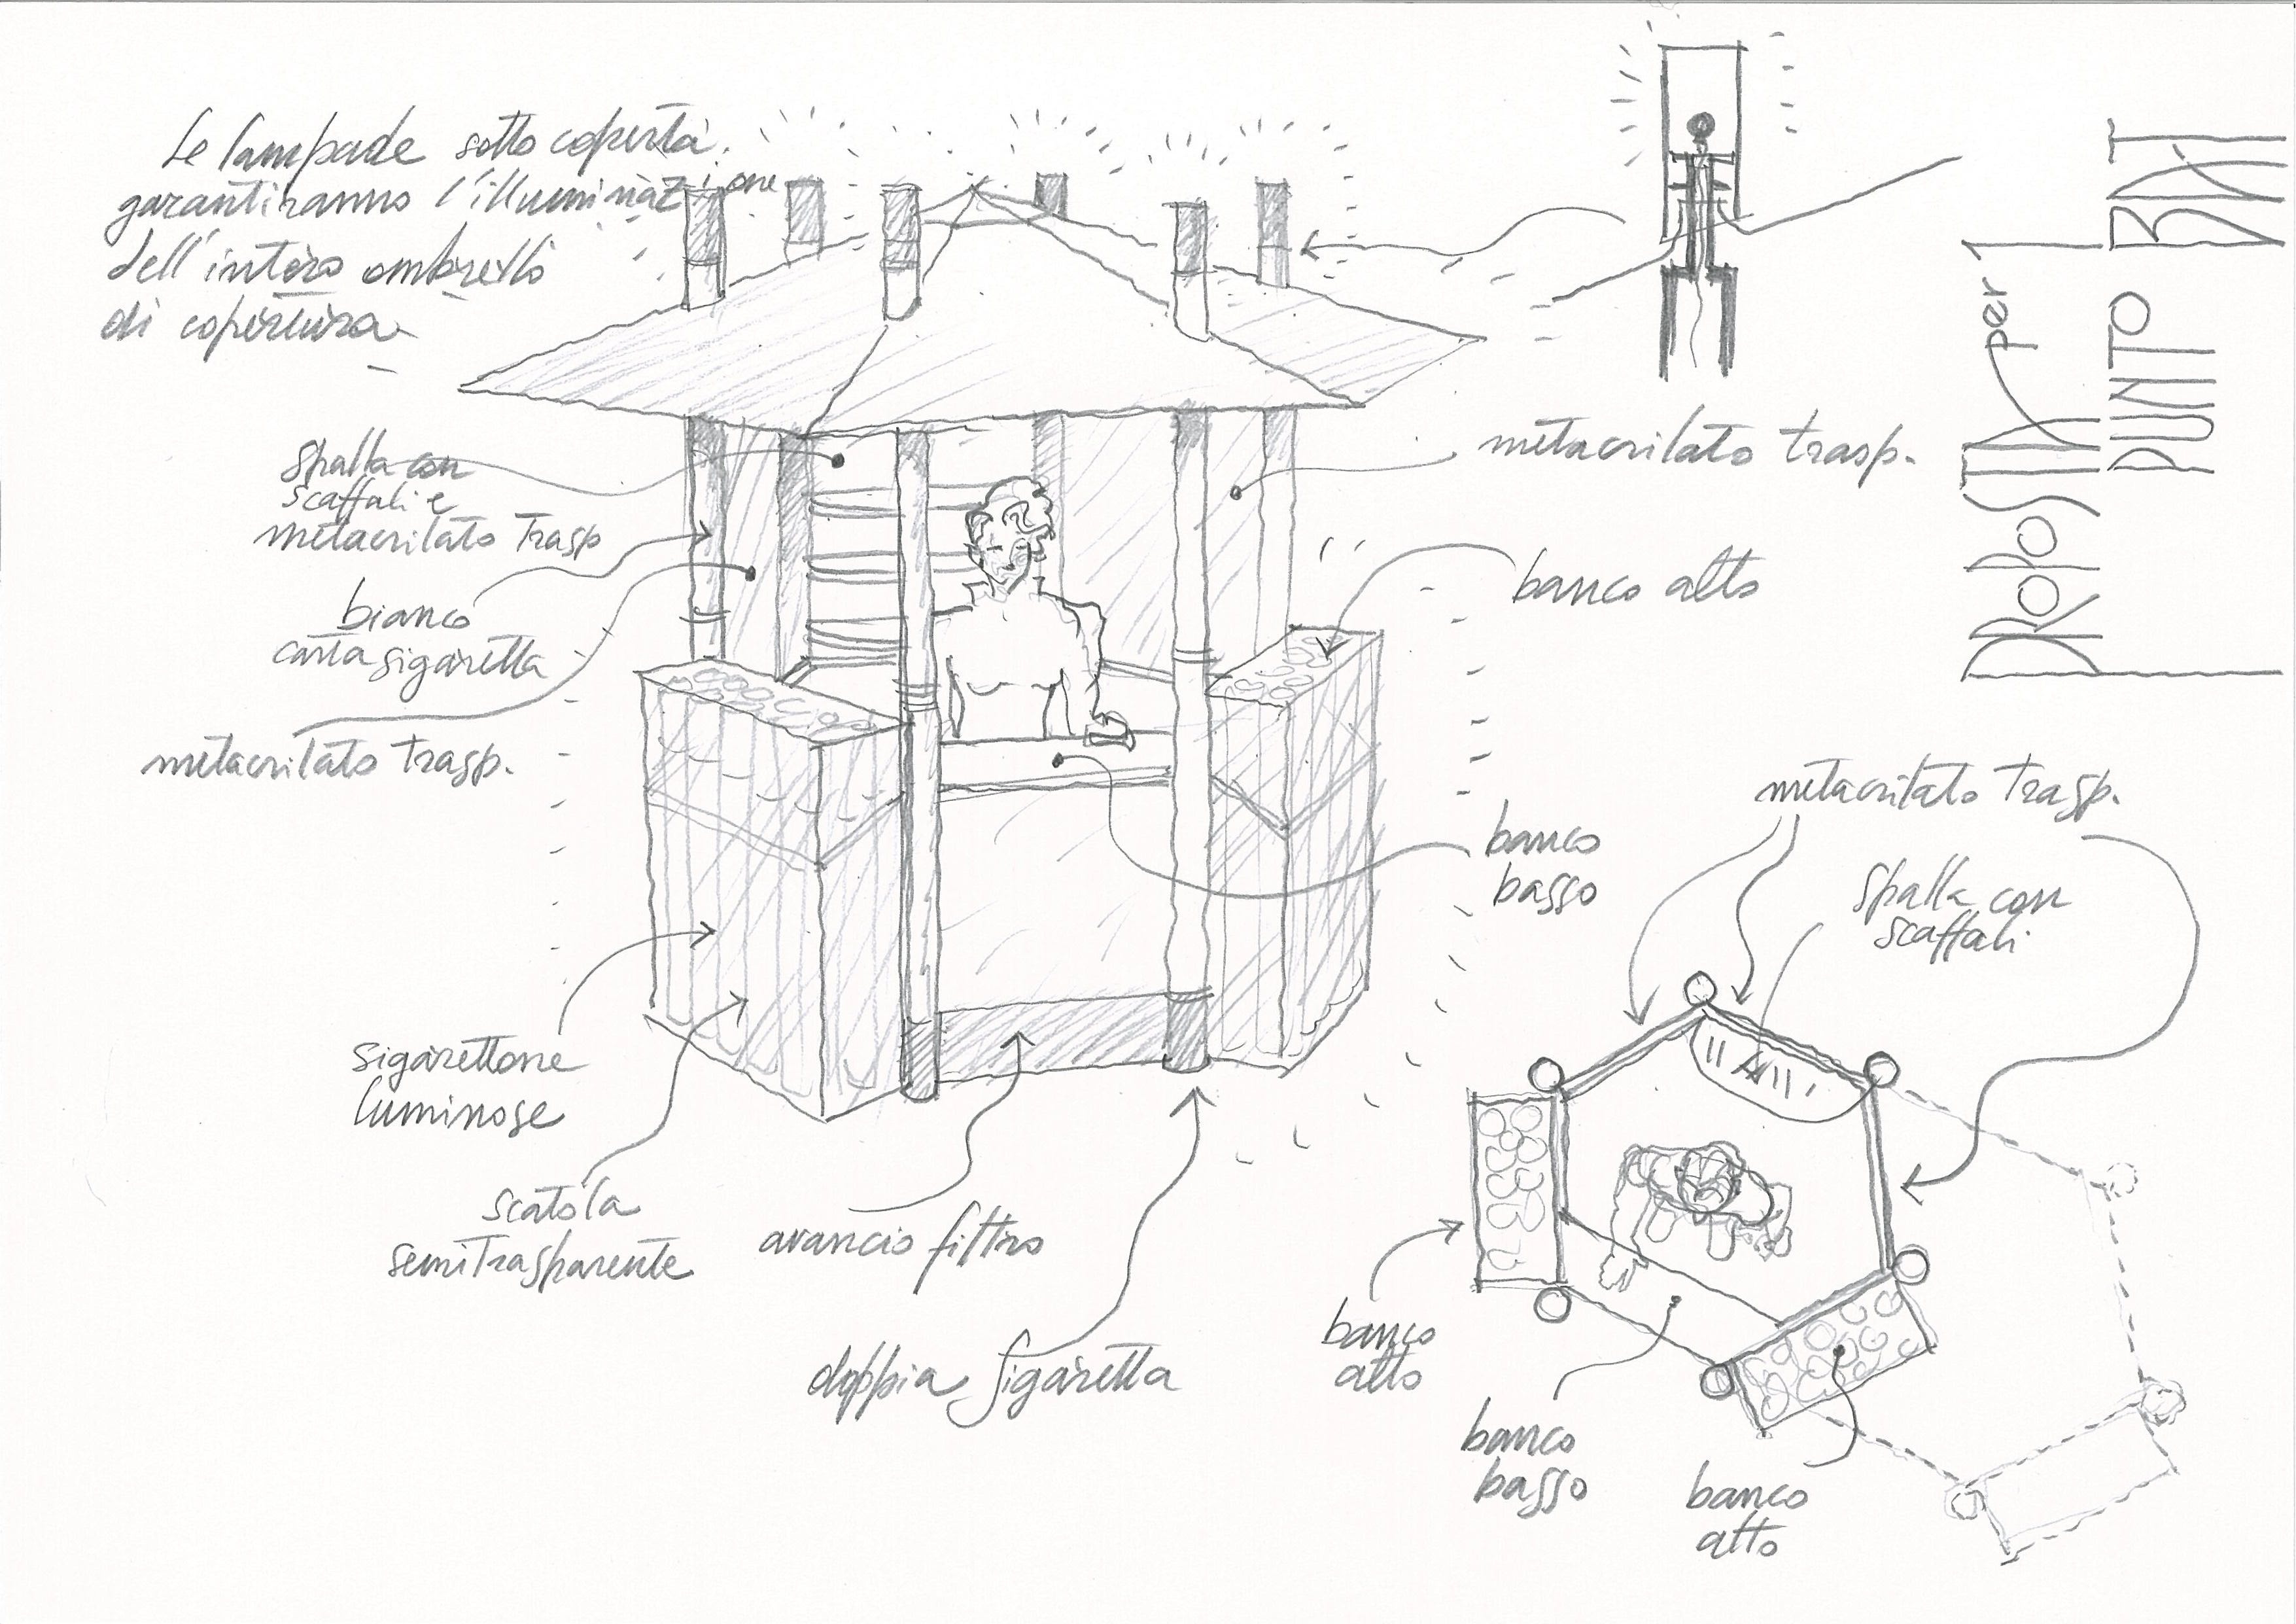 Le lampade sotto coperta
garantiranno l'illuminazione
dell'intero ombrello
di copertura
spalla con
scaffali e
metacrilato trasp
bianco
carta sigaretta
metacrilato trasp.
sigarettone
luminose
scatola
semitrasparente
arancio filtro
doppia sigaretta
metacrilato trasp.
banco alto
banco
basso
PROPOSTA per 1
PUNTO BAT
metacrilato trasp.
spalla con
scaffali
banco
alto
banco
basso
banco
alto